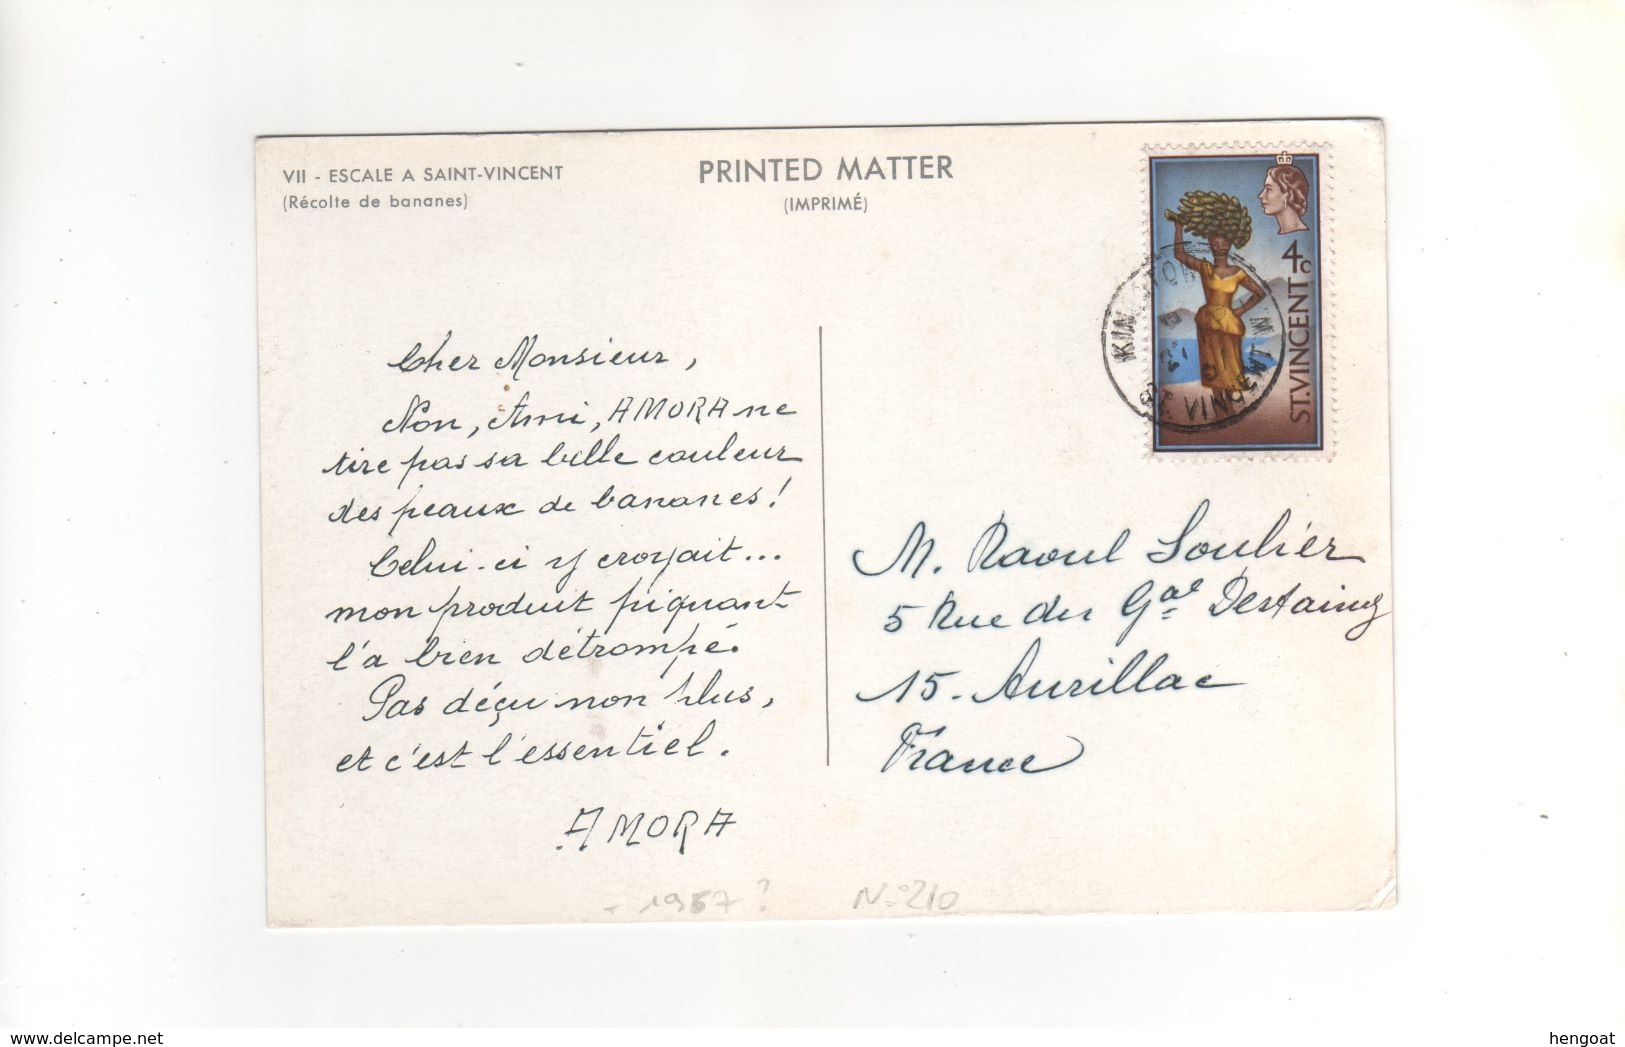 VII - ESCALE A SAINT-VINCENT
(Récolte de bananes)
PRINTED MATTER
(IMPRIMÉ)
4c
ST.VINCENT
KINGSTOWN
ST. VINCENT
Cher Monsieur,
Non, Ami, AMORA ne
tire pas sa belle couleur
des peaux de bananes!
Celui-ci y croyait...
mon produit piquant
l'a bien détrompé.
Pas déçu non plus,
et c'est l'essentiel.
AMORA
M. Raoul Soulier
5 Rue du Gal Destaing
15. Aurillac
France
- 1967?
N°210
hengoat